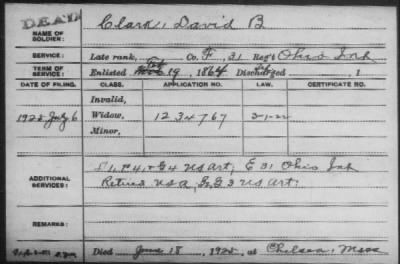 DEAD
NAME OF SOLDIER: Clark, David B
SERVICE: Late rank, Co. F, 31 Reg't Ohio Inf
TERM OF SERVICE: Enlisted 19, 1864 Discharged , 1
DATE OF FILING. CLASS. APPLICATION NO. LAW. CERTIFICATE NO.
Invalid,
1925 July 6 Widow, 1234767
Minor,
ADDITIONAL SERVICES: 4 US Art; E 31 Ohio Inf
Retired USA, G, G 3 US Art;
REMARKS:
Died June 18, 1925, at Chelsea, Mass